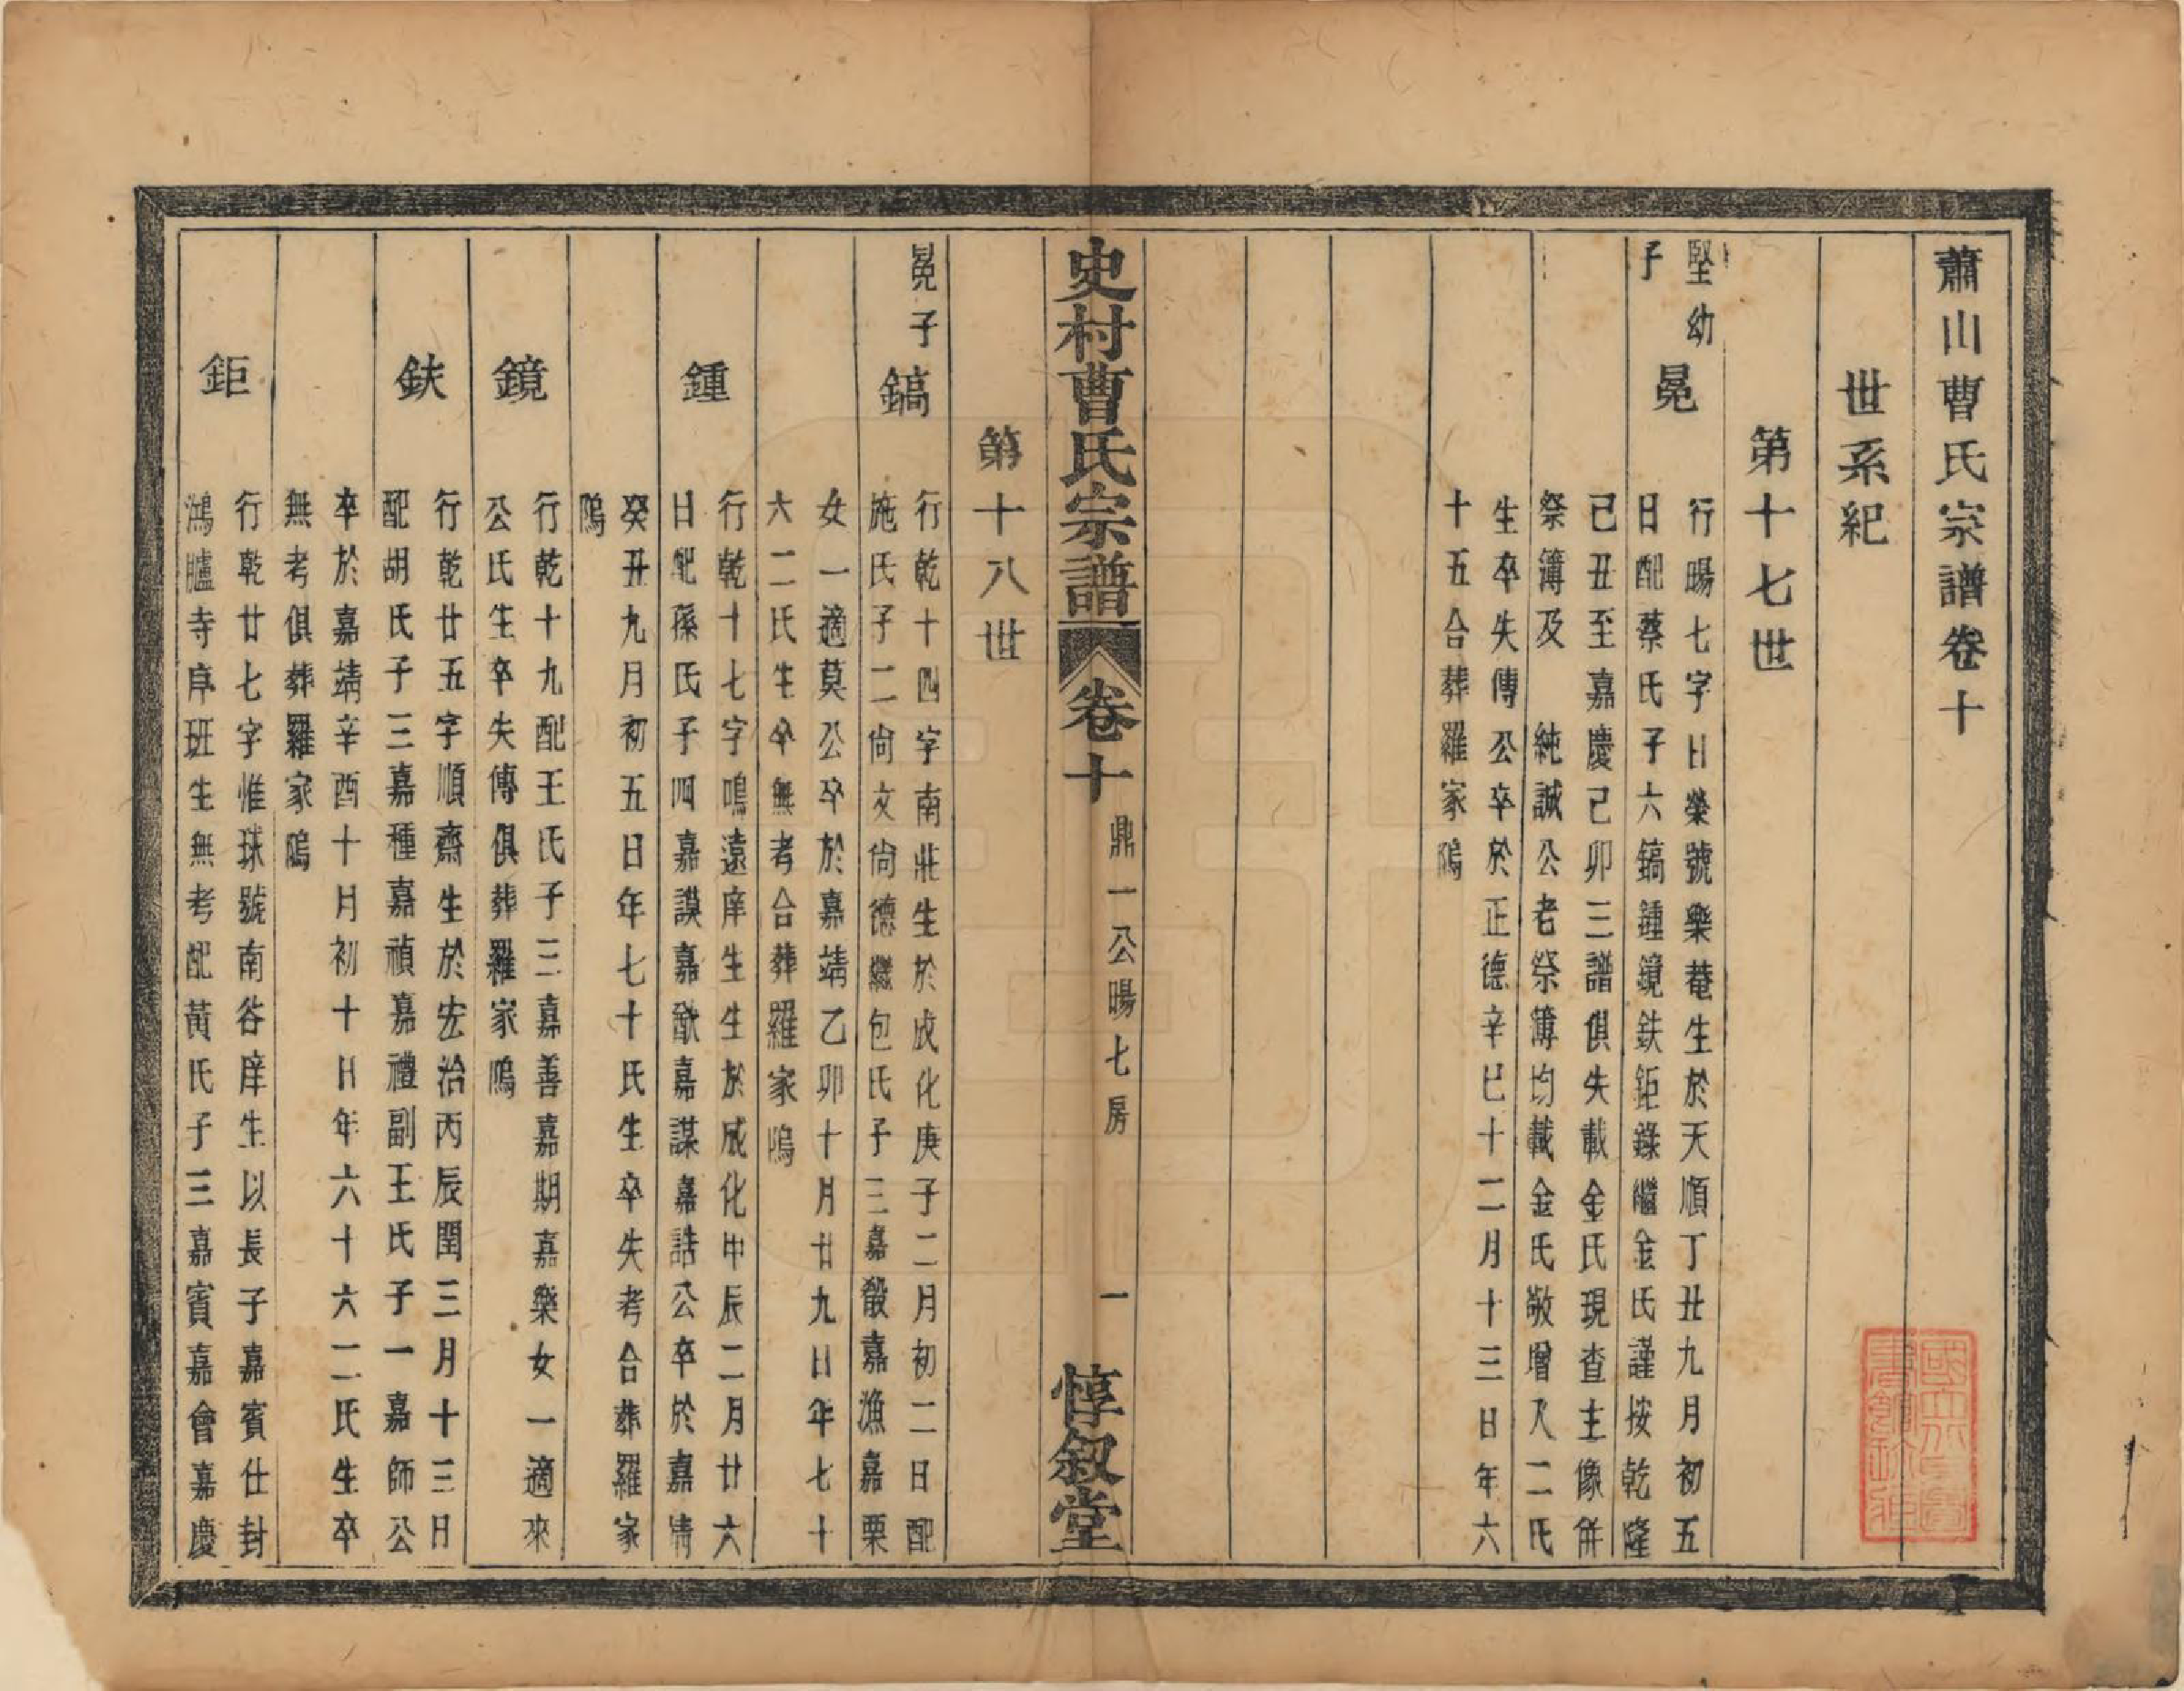 蕭山曹氏宗譜卷十
世系紀
第十七世
堅幼
子
冕
行暘七字日榮號樂菴生於天順丁丑九月初五
日配蔡氏子六鎬鍾鏡鈇鉅錄繼金氏謹按乾隆
己丑至嘉慶己卯三譜俱失載金氏現查主像併
祭簿及　純誠公老祭簿均載金氏敬增入二氏
生卒失傳公卒於正德辛巳十二月十三日年六
十五合葬羅家隖
史村曹氏宗譜
卷十
鼎一公暘七房
一
惇叙堂
第十八世
冕子
鎬
行乾十四字南莊生於成化庚子二月初二日配
施氏子二尙文尙德繼包氏子三嘉毅嘉漁嘉栗
女一適莫公卒於嘉靖乙卯十月廿九日年七十
六二氏生卒無考合葬羅家隖
鍾
行乾十七字鳴遠庠生生於成化甲辰二月廿六
日配孫氏子四嘉謨嘉猷嘉謀嘉誥公卒於嘉靖
癸丑九月初五日年七十氏生卒失考合葬羅家
隖
鏡
行乾十九配王氏子三嘉善嘉期嘉樂女一適來
公氏生卒失傳俱葬羅家隖
鈇
行乾廿五字順齋生於宏治丙辰閏三月十三日
配胡氏子三嘉種嘉禎嘉禮副王氏子一嘉師公
卒於嘉靖辛酉十月初十日年六十六二氏生卒
無考俱葬羅家隖
鉅
行乾廿七字惟球號南谷庠生以長子嘉賓仕封
鴻臚寺序班生無考配黃氏子三嘉賓嘉會嘉慶